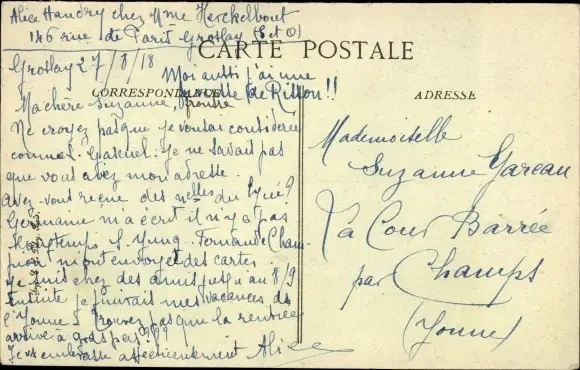 Alice Haudry chez Mme Herckelbout
146 rue de Paris Groslay (S et O)
CARTE POSTALE
Groslay 27/8/18
Moi aussi j'ai une
frousse de Risson!!
CORRESPONDANCE
ADRESSE
Ma chère Suzanne,
Ne croyez pas que je voulais
comme. Je ne savais pas
que vous avez mon adresse.
Avez-vous reçue des nelles du lycée?
Germaine m'a écrit il n'y a pas
longtemps S. Yung. Fernande Cham-
pion m'ont envoyé des cartes.
Je suis chez des amis jusqu'au 8/9
Ensuite je finirais mes vacances ds
l'Yonne. Trouvez pas que la rentrée
arrive à gds pas!?
Je vs embrasse affectueusement Alice
Mademoiselle
Suzanne Gareau
La Cour Barrée
par Champs
(Yonne)